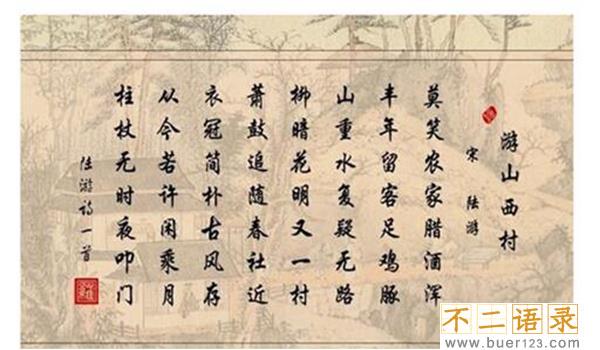 游山西村
宋 陆游
莫笑农家腊酒浑
丰年留客足鸡豚
山重水复疑无路
柳暗花明又一村
萧鼓追随春社近
衣冠简朴古风存
从今若许闲乘月
柱杖无时夜叩门
陆游诗一首
不二语录
www.buer123.com